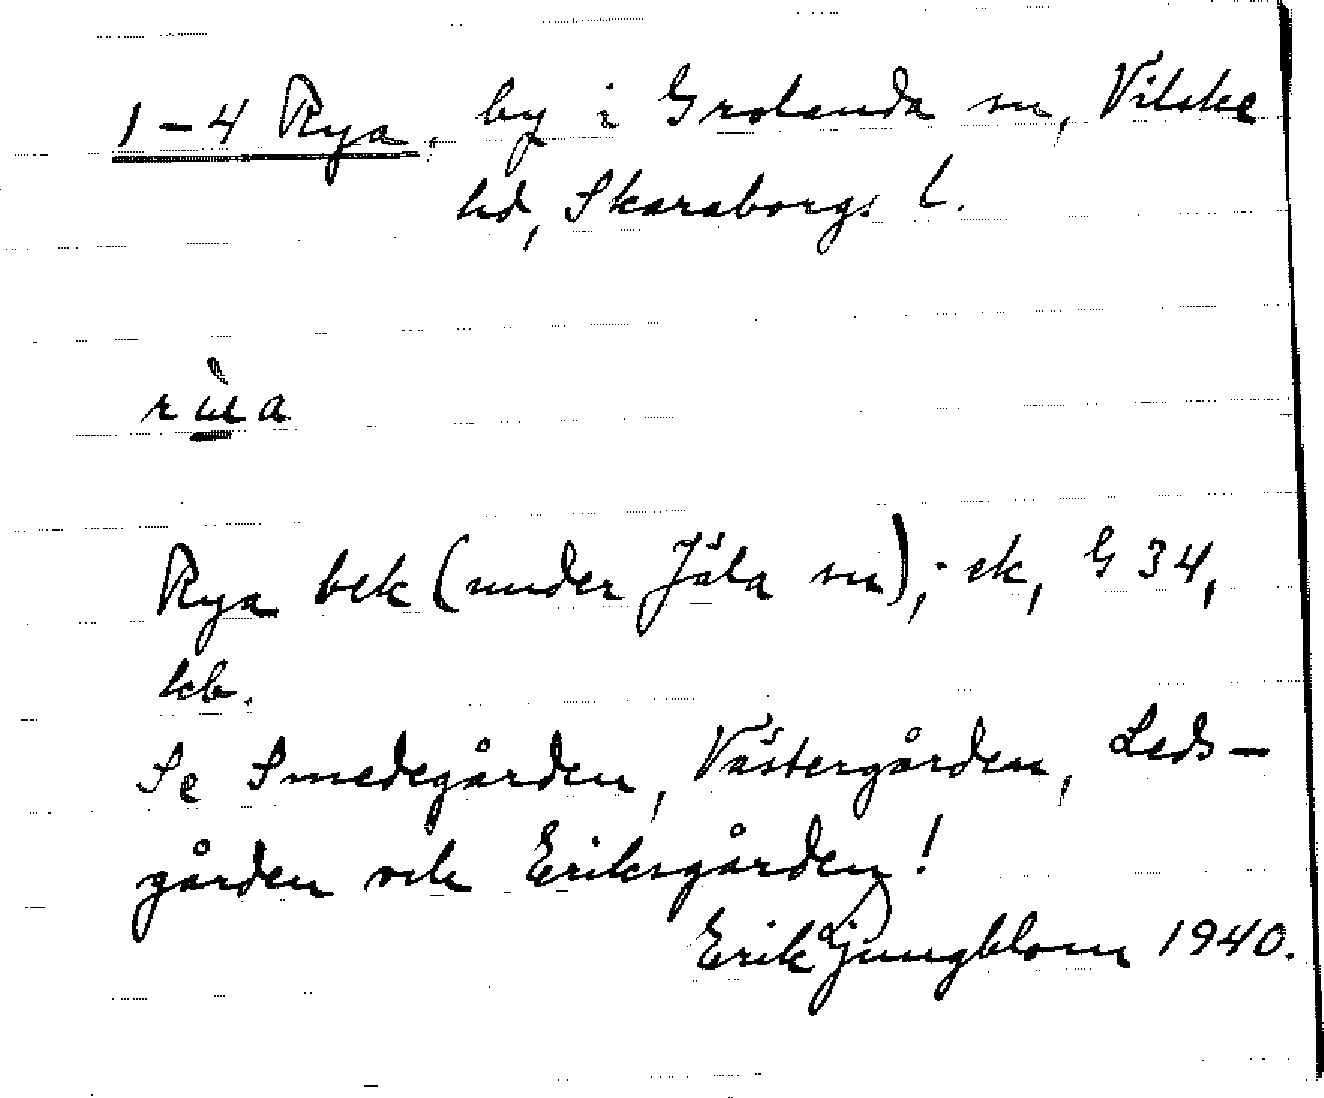 1-4 Rya, by i Grolanda sn, Vilske
hd, Skaraborgs l.
Rya bek (under Jäla sn); ek, G 34,
kb.
Se Smedegården, Västergården, Leds-
gården och Eriksgården!
Erik Ljungblom 1940.